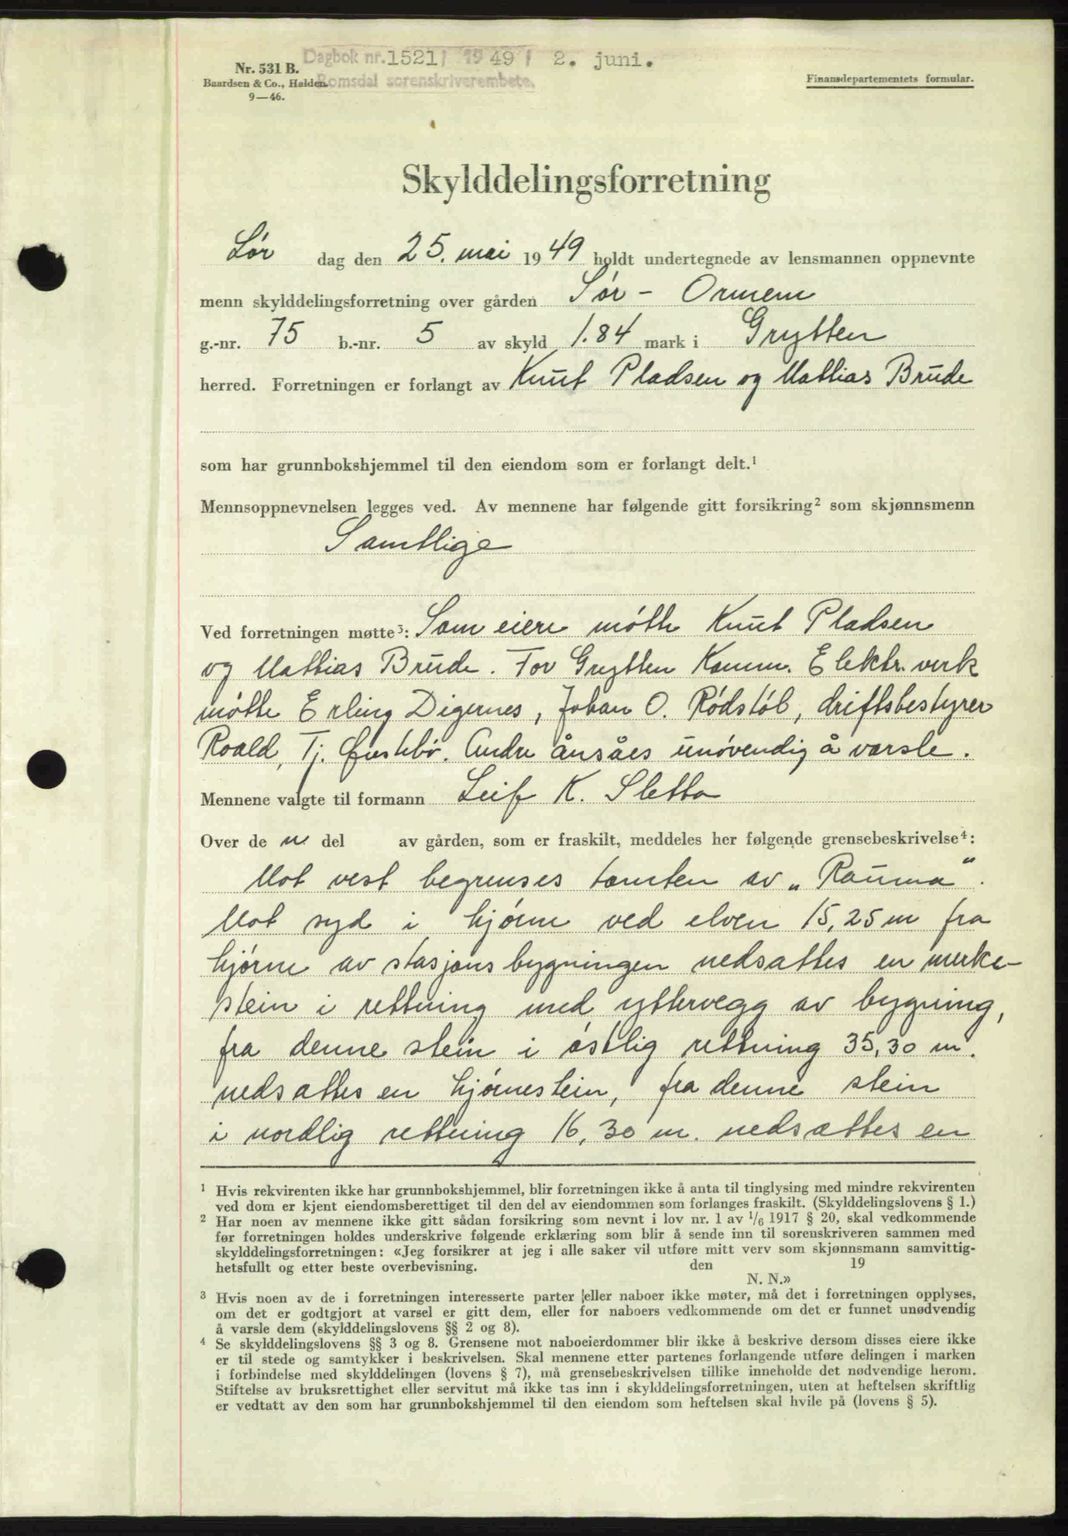 Dagbok nr. 1521 / 1949 / 2. juni.
Romsdal sorenskriverembete.
Nr. 531 B.
Baardsen & Co., Halden.
9—46.
Finansdepartementets formular.
Skylddelingsforretning
Lør dag den 25. mai 1949 holdt undertegnede av lensmannen oppnevnte
menn skylddelingsforretning over gården Sør - Ormem
g.-nr. 75 b.-nr. 5 av skyld 1.84 mark i Grytten
herred. Forretningen er forlangt av Knut Pladsen og Mathias Brude
som har grunnbokshjemmel til den eiendom som er forlangt delt.¹
Mennsoppnevnelsen legges ved. Av mennene har følgende gitt forsikring² som skjønnsmenn
Samtlige
Ved forretningen møtte³: Som eiere møtte Knut Pladsen
og Mathias Brude. For Grytten Komm. Elektr. verk
møtte Erling Digernes, Johan O. Rødstøl, driftsbestyrer
Roald, Tj. Øustebø. Andre ånsåes unøvendig å varsle.
Mennene valgte til formann Leif K. Sletta
Over de n del av gården, som er fraskilt, meddeles her følgende grensebeskrivelse⁴:
Mot vest begrenses tomten av „Rauma".
Mot syd i hjørne ved elven 15,25 m fra
hjørne av stasjonsbygningen nedsattes en merke-
stein i rettning med yttervegg av bygning,
fra denne stein i østlig rettning 35,30 m.
nedsattes en hjørnestein, fra denne stein
i nordlig rettning 16,30 m. nedsættes en
¹ Hvis rekvirenten ikke har grunnbokshjemmel, blir forretningen ikke å anta til tinglysing med mindre rekvirenten
ved dom er kjent eiendomsberettiget til den del av eiendommen som forlanges fraskilt. (Skylddelingslovens § 1.)
² Har noen av mennene ikke gitt sådan forsikring som nevnt i lov nr. 1 av 1/6 1917 § 20, skal vedkommende
før forretningen holdes underskrive følgende erklæring som blir å sende inn til sorenskriveren sammen med
skylddelingsforretningen: «Jeg forsikrer at jeg i alle saker vil utføre mitt verv som skjønnsmann samvittig-
hetsfullt og etter beste overbevisning. den 19
N. N.»
³ Hvis noen av de i forretningen interesserte parter eller naboer ikke møter, må det i forretningen opplyses,
om det er godtgjort at varsel er gitt dem, eller for naboers vedkommende om det er funnet unødvendig
å varsle dem (skylddelingslovens §§ 2 og 8).
⁴ Se skylddelingslovens §§ 3 og 8. Grensene mot naboeierdommer blir ikke å beskrive dersom disses eiere ikke
er til stede og samtykker i beskrivelsen. Skal mennene etter partenes forlangende utføre delingen i marken
i forbindelse med skylddelingen (lovens § 7), må grensebeskrivelsen tillike inneholde det nødvendige herom.
Stiftelse av bruksrettighet eller servitut må ikke tas inn i skylddelingsforretningen, uten at heftelsen skriftlig
er vedtatt av den som har grunnbokshjemmel til den eiendom som heftelsen skal hvile på (lovens § 5).